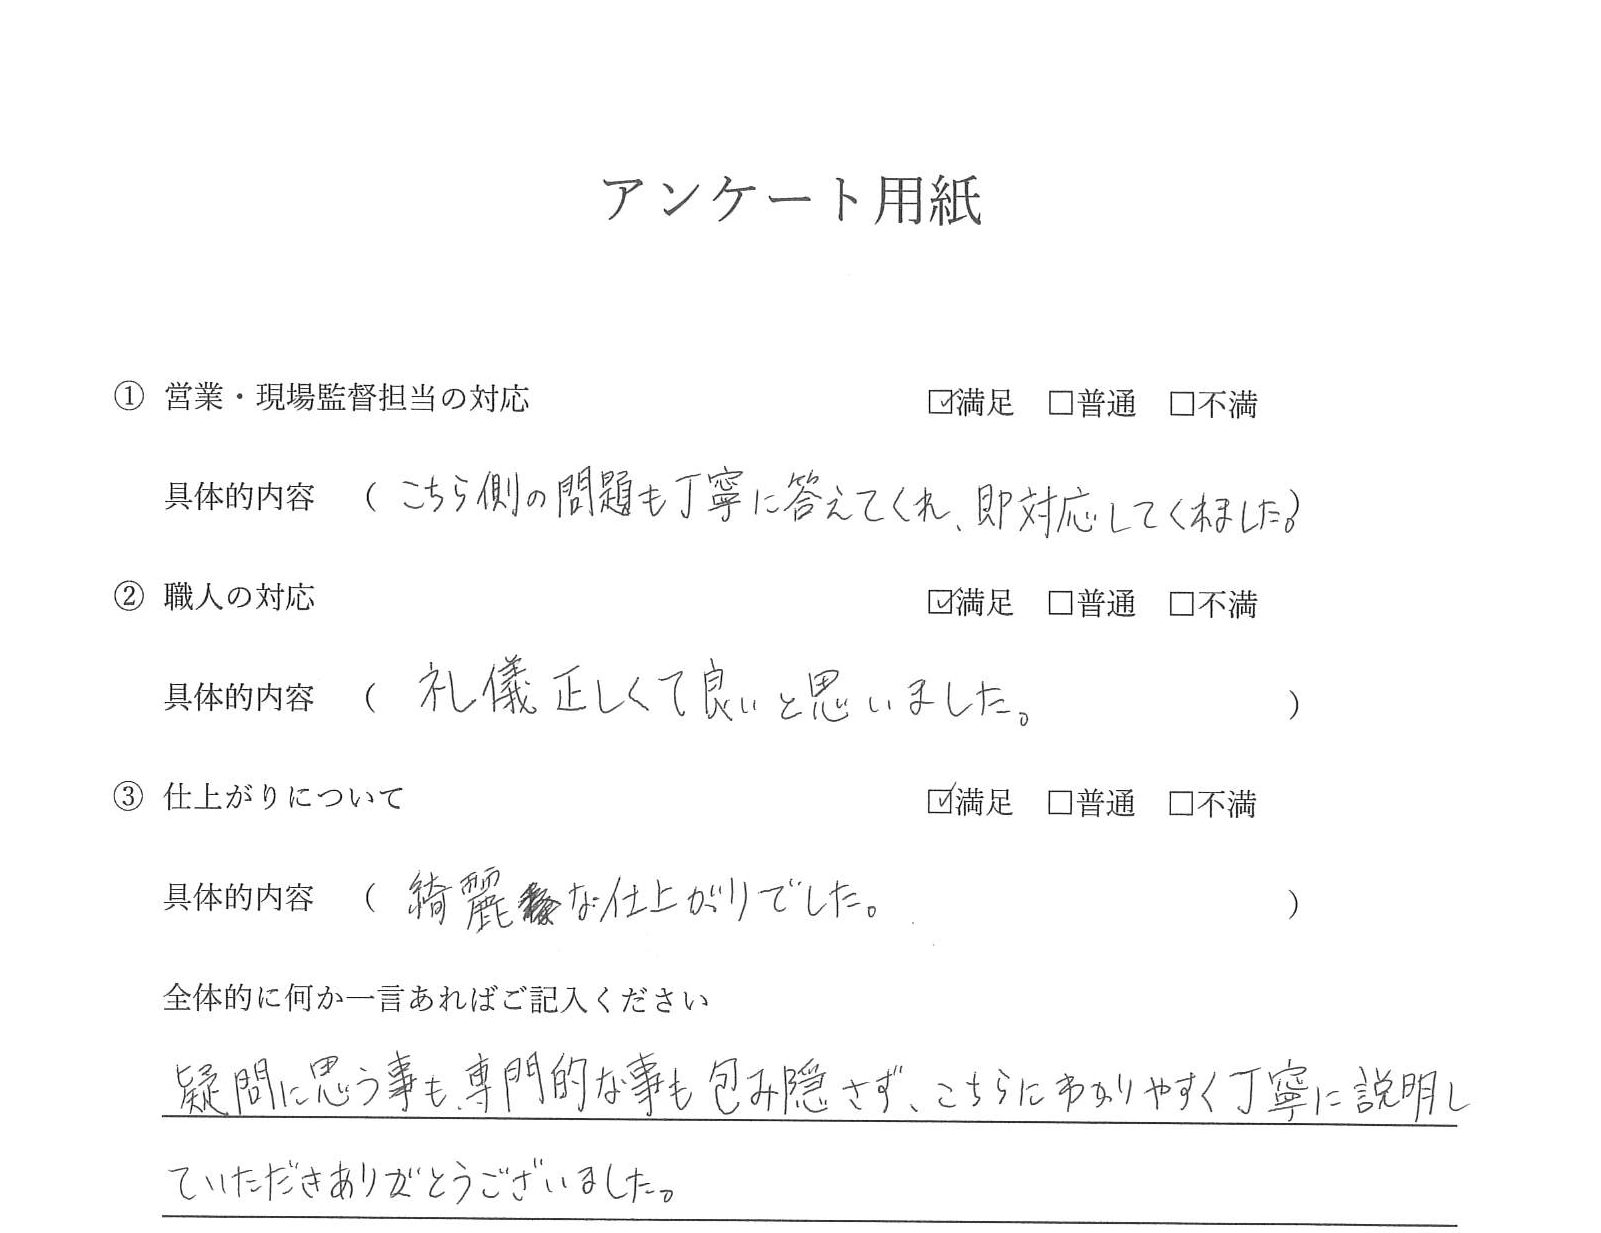 アンケート用紙
① 営業・現場監督担当の対応 ☑満足 □普通 □不満
具体的内容 ( こちら側の問題も丁寧に答えてくれ、即対応してくれました。)
② 職人の対応 ☑満足 □普通 □不満
具体的内容 ( 礼儀正しくて良いと思いました。 )
③ 仕上がりについて ☑満足 □普通 □不満
具体的内容 ( 綺麗な仕上がりでした。 )
全体的に何か一言あればご記入ください
疑問に思う事も、専門的な事も包み隠さず、こちらにわかりやすく丁寧に説明し
ていただきありがとうございました。